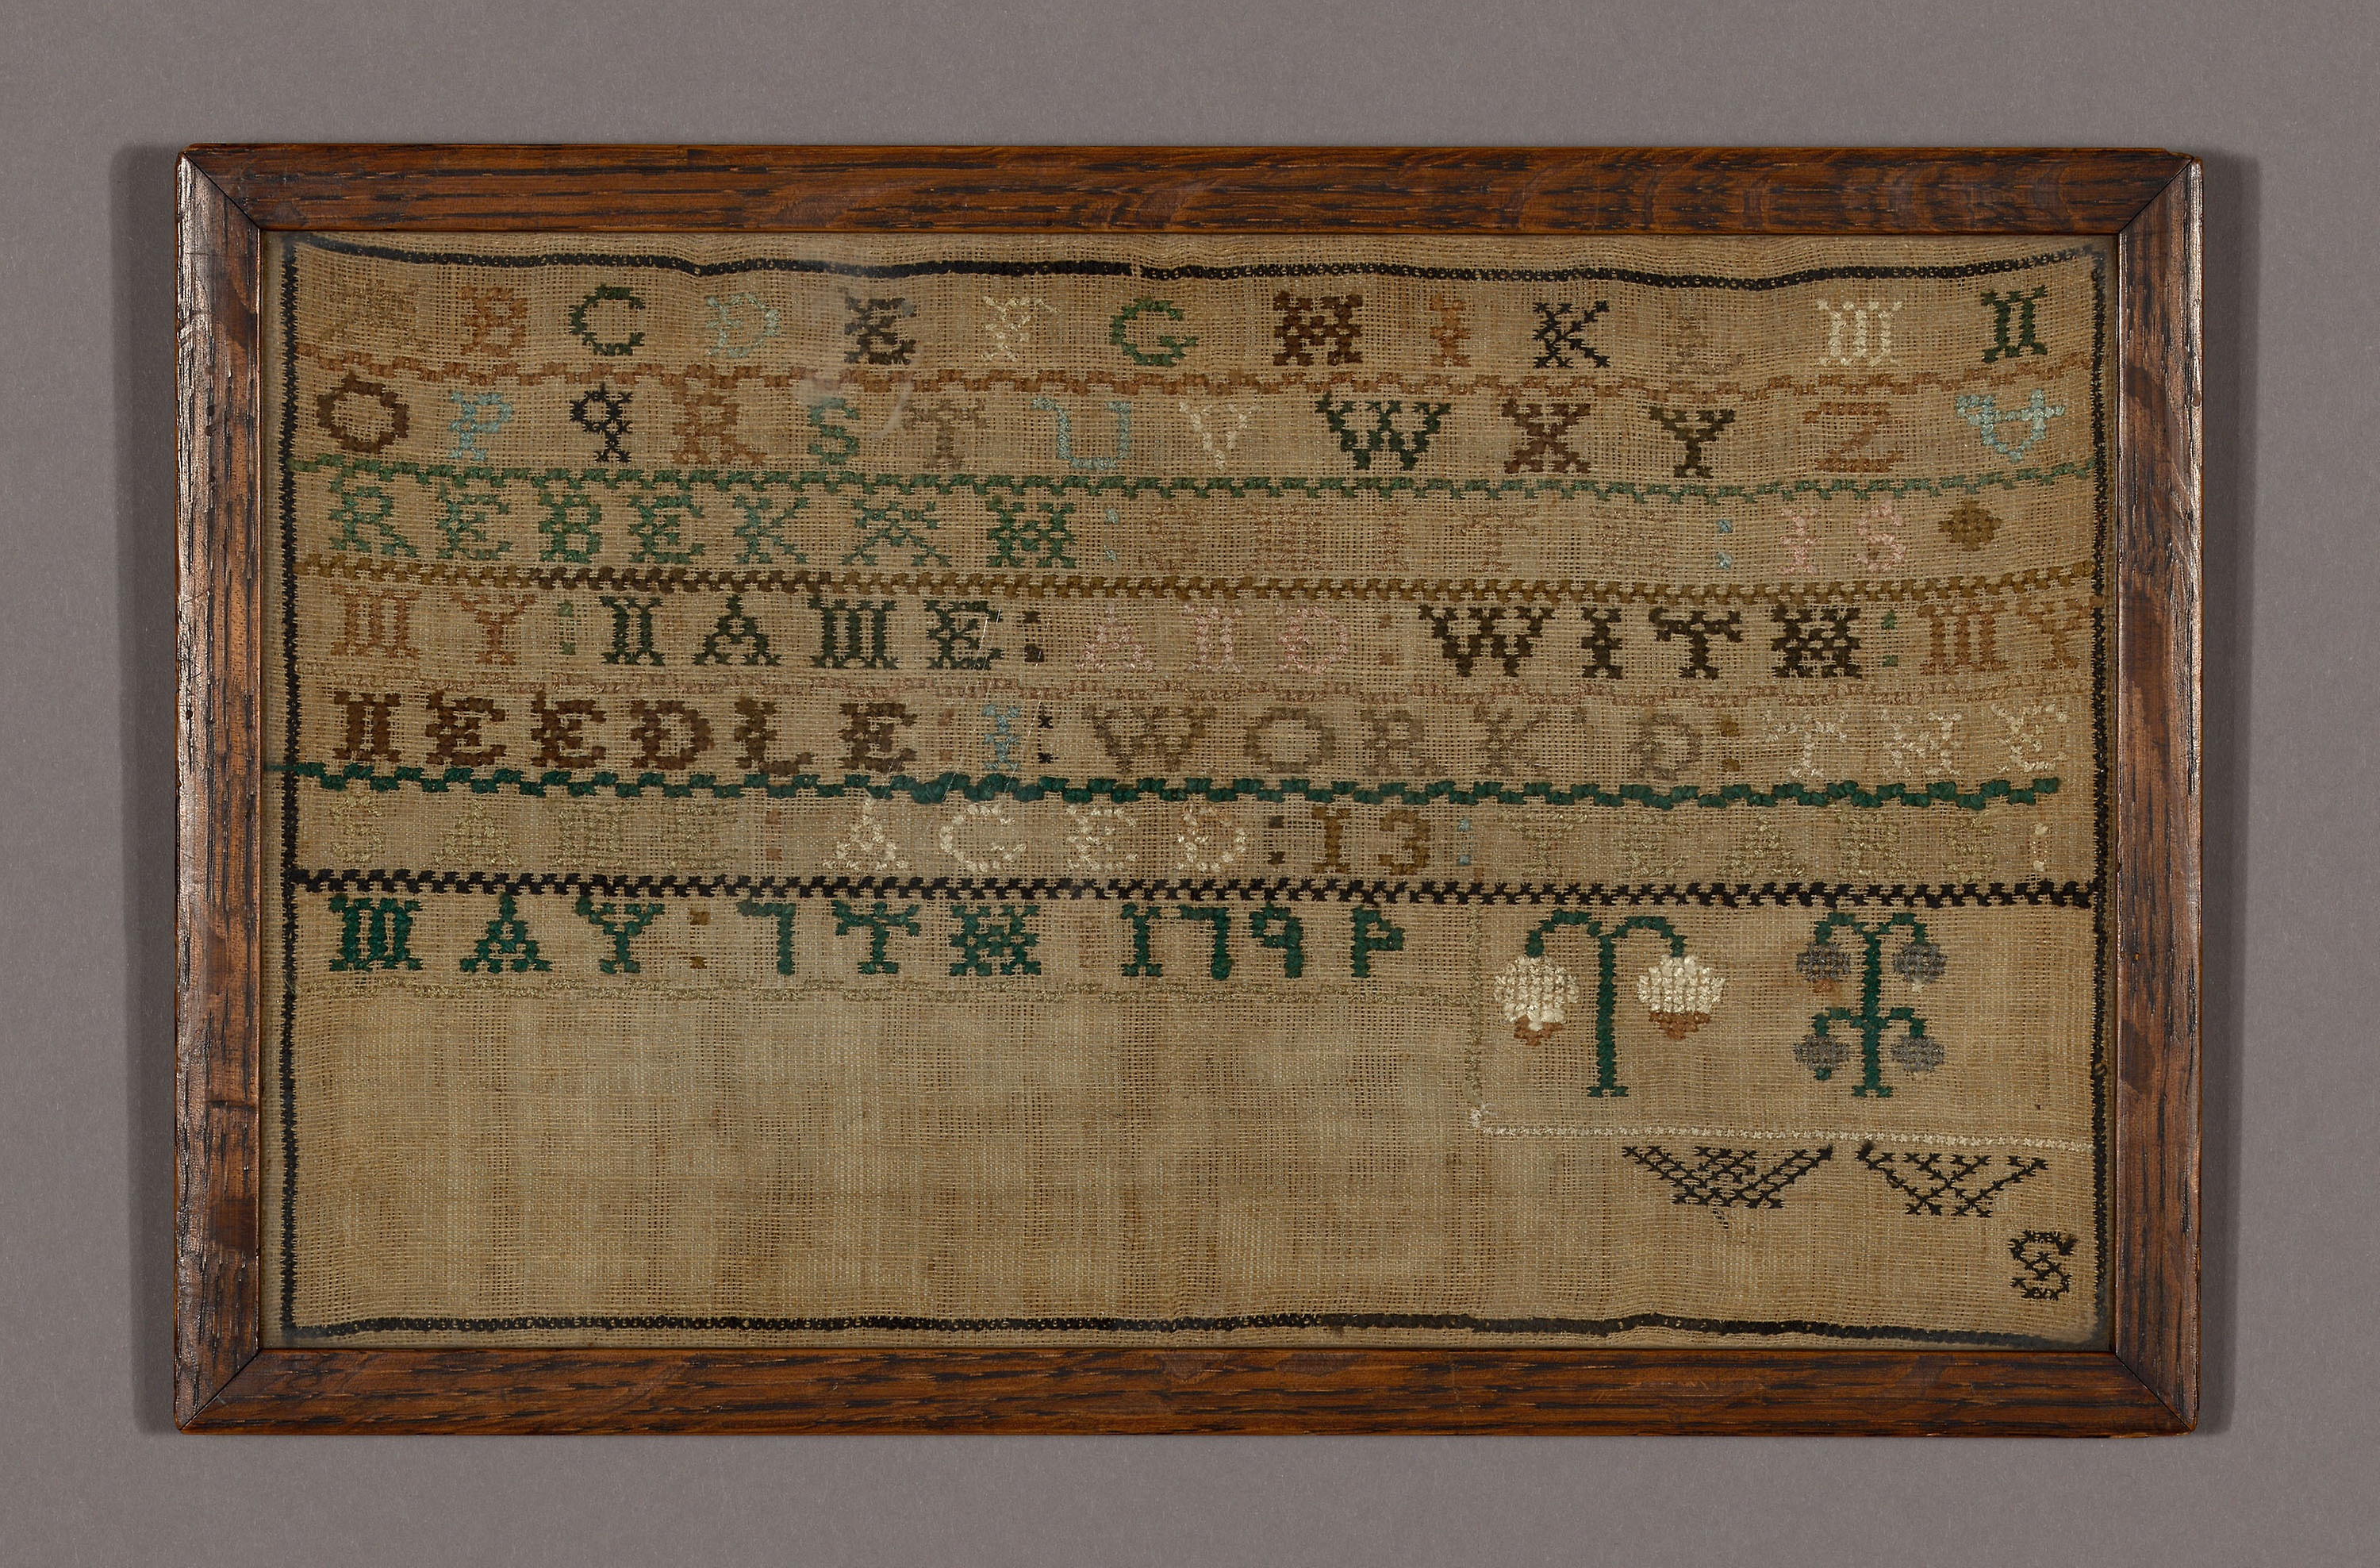 A B C D E F G H I K L M N
O P Q R S T U V W X Y Z &
REBEKAH : SMITH : IS
MY : NAME : AND : WITH : MY
NEEDLE : I : WORK'D : THE
SAME : AGED : 13 : YEARS :
MAY : 7TH 1794
S